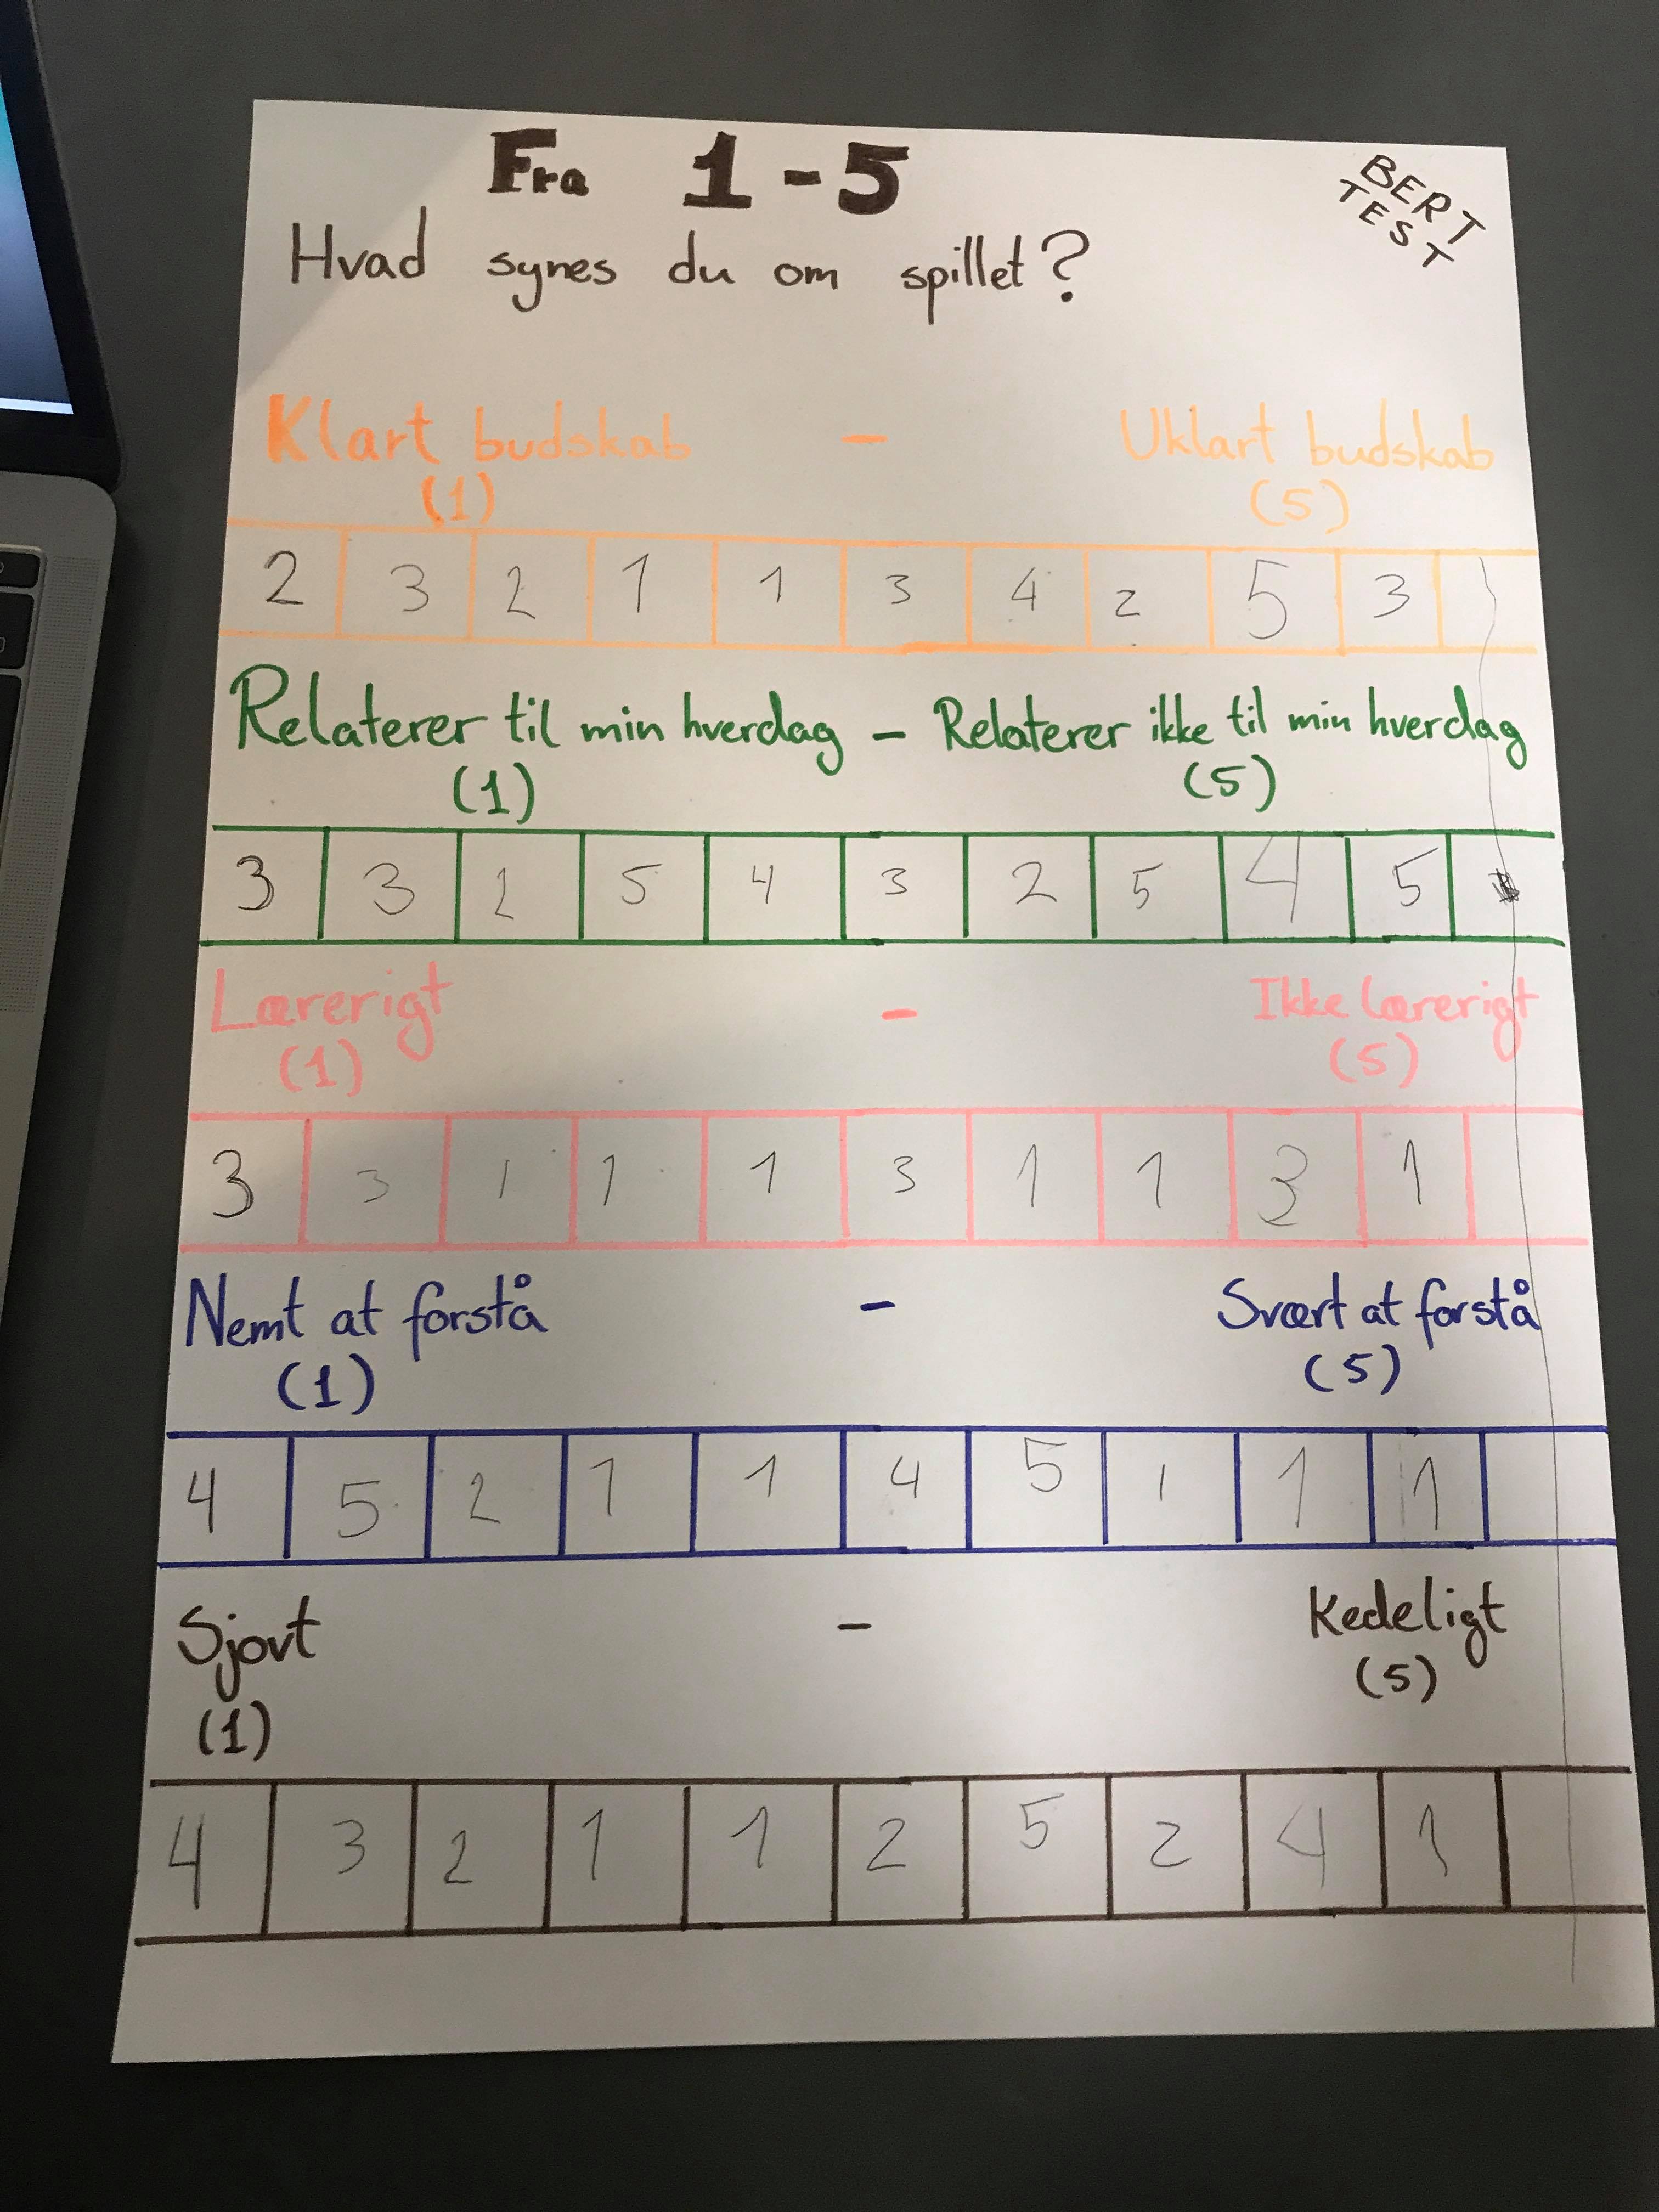 Fra 1-5
BERT
TEST
Hvad synes du om spillet?
Klart budskab - Uklart budskab
(1) (5)
2 3 2 1 1 3 4 2 5 3
Relaterer til min hverdag - Relaterer ikke til min hverdag
(1) (5)
3 3 2 5 4 3 2 5 4 5
Lærerigt - Ikke lærerigt
(1) (5)
3 3 1 1 1 3 1 1 3 1
Nemt at forstå - Svært at forstå
(1) (5)
4 5 2 1 1 4 5 1 1 1
Sjovt - Kedeligt
(1) (5)
4 3 2 1 1 2 5 2 4 1